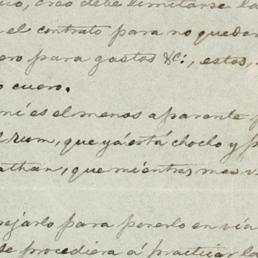 creo debe limitarse la
el contrato para no quedar
ero para gastos &c: , estos,
o cuero.
mi es el menos aparente
rum, que yá está chocho y p
athan, que mientras mas v
ejarlo para ponerlo en vía
se procediera á practicar la